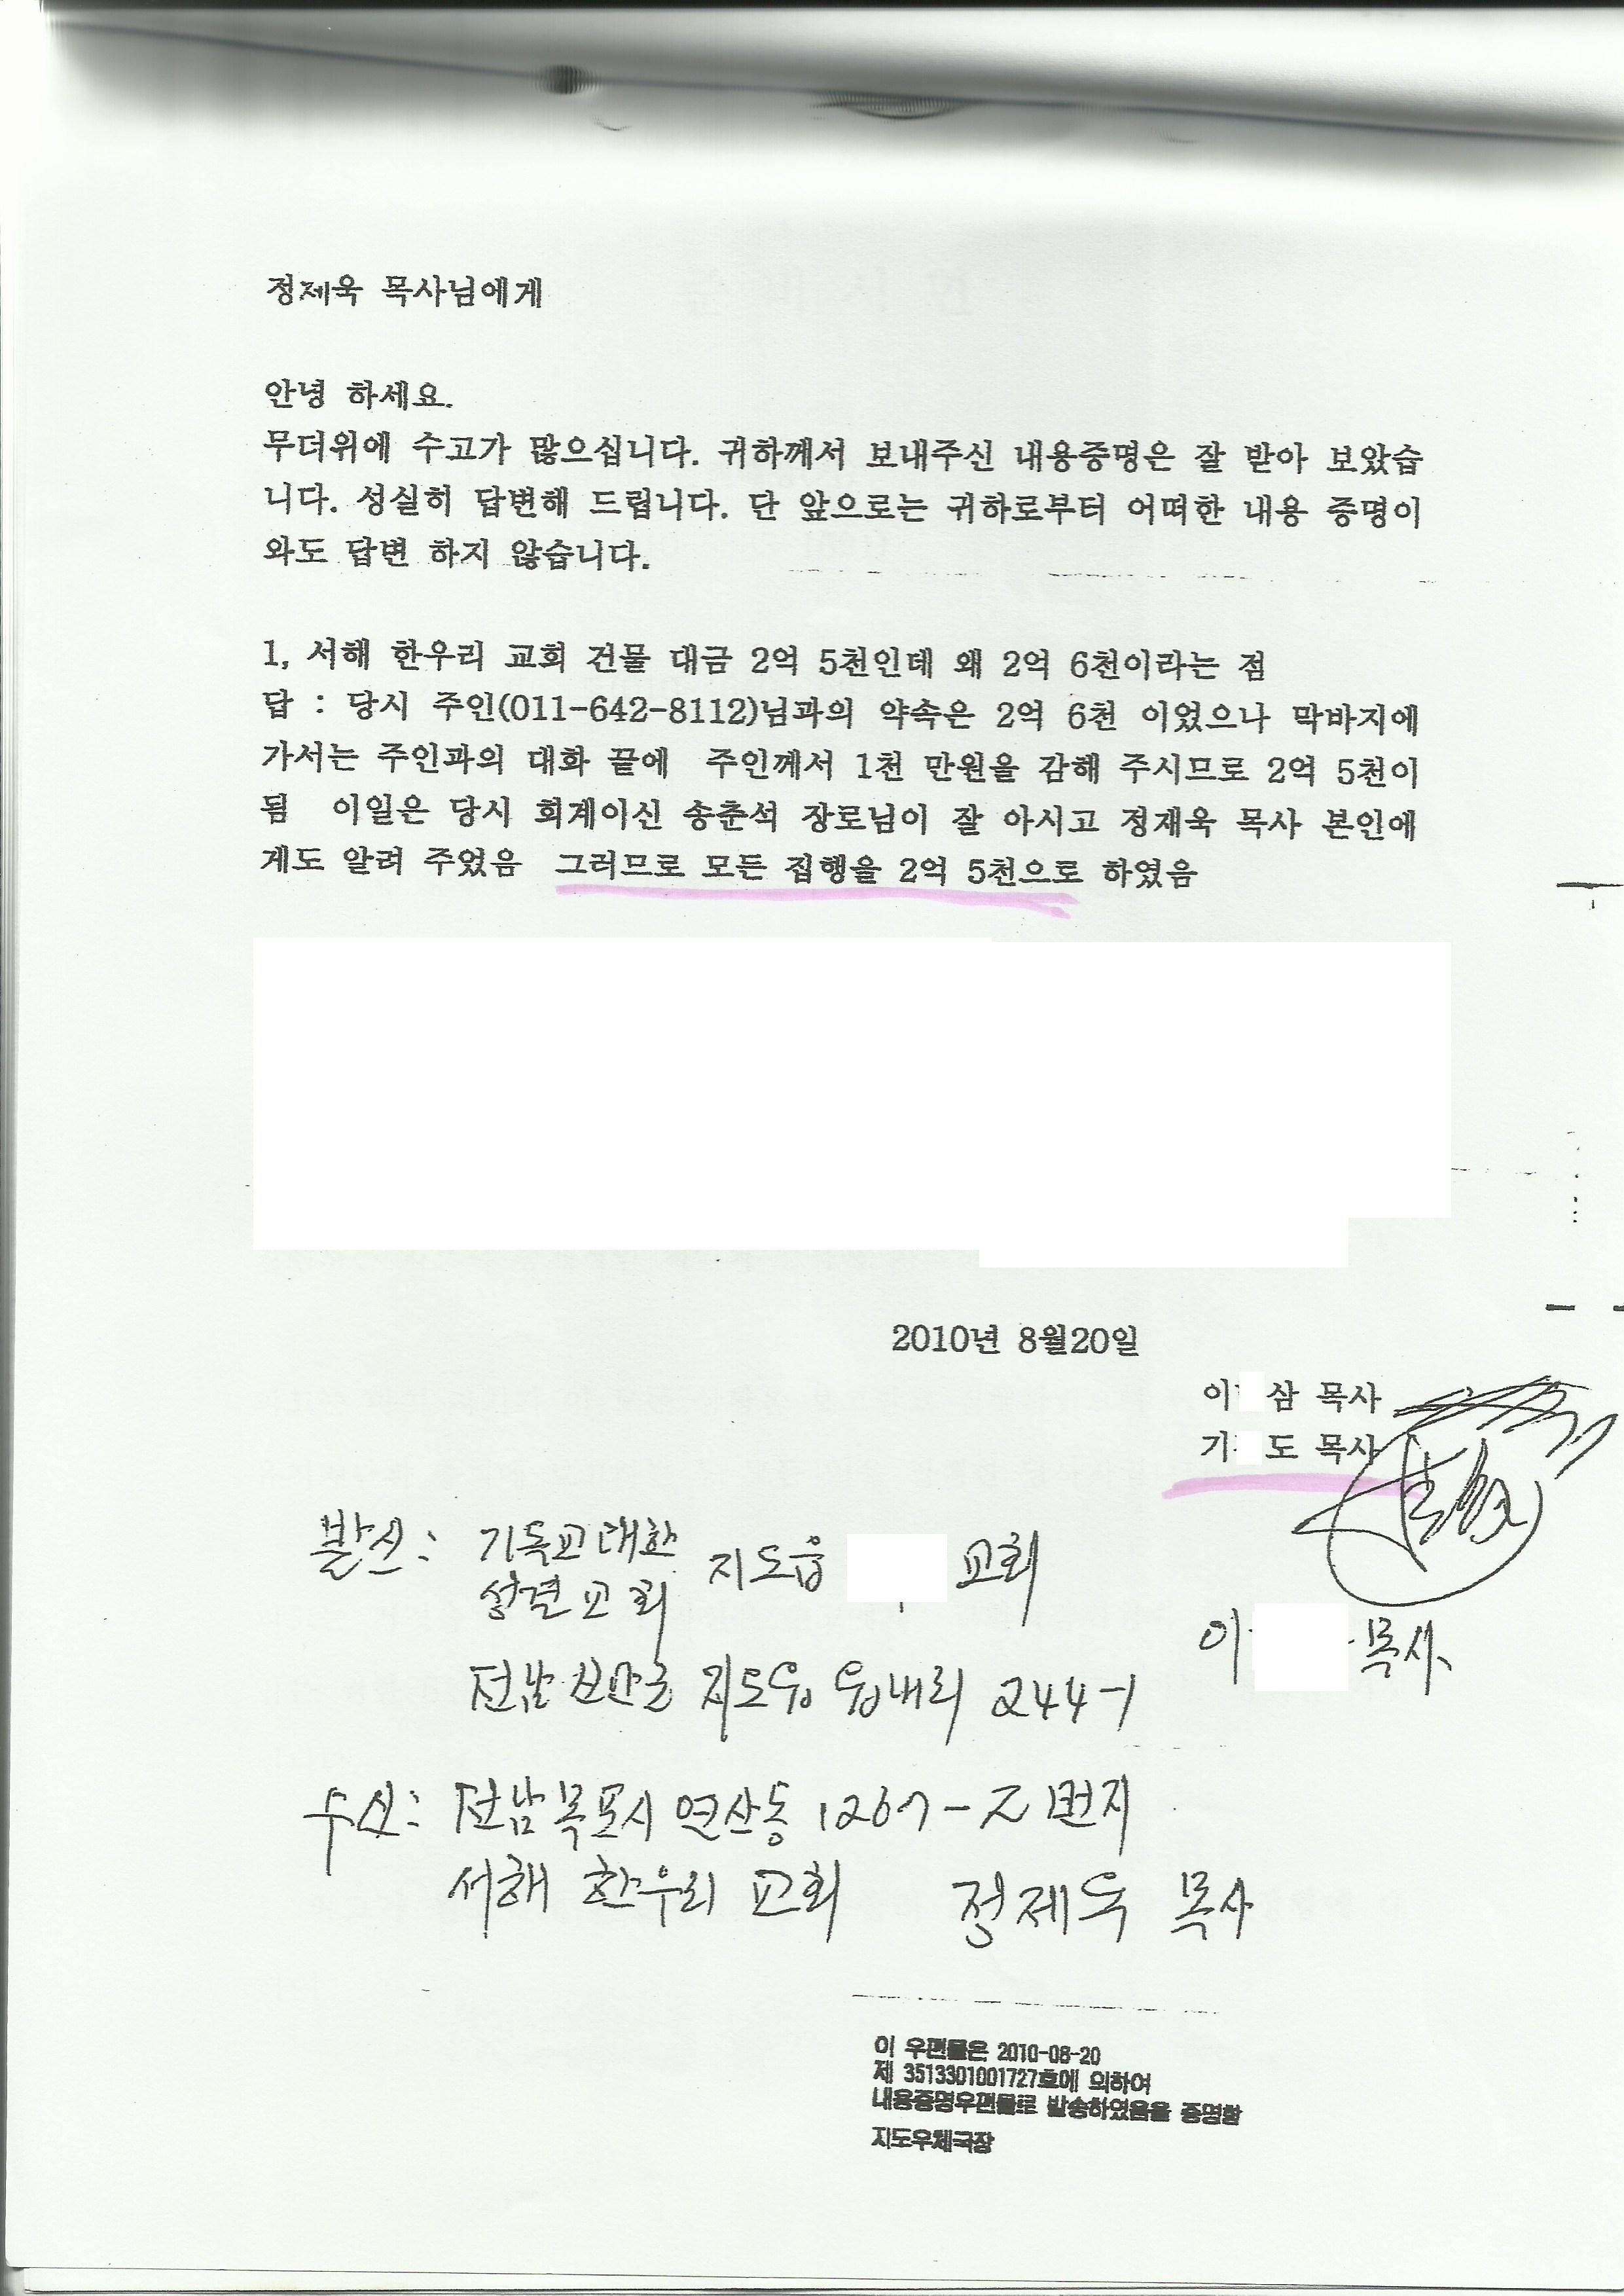 정제욱 목사님에게
안녕 하세요.
무더위에 수고가 많으십니다. 귀하께서 보내주신 내용증명은 잘 받아 보았습
니다. 성실히 답변해 드립니다. 단 앞으로는 귀하로부터 어떠한 내용 증명이
와도 답변 하지 않습니다.
1, 서해 한우리 교회 건물 대금 2억 5천인데 왜 2억 6천이라는 점
답 : 당시 주인(011-642-8112)님과의 약속은 2억 6천 이었으나 막바지에
가서는 주인과의 대화 끝에 주인께서 1천 만원을 감해 주시므로 2억 5천이
됨 이일은 당시 회계이신 송춘석 장로님이 잘 아시고 정재욱 목사 본인에
게도 알려 주었음 그러므로 모든 집행을 2억 5천으로 하였음
2010년 8월20일
이 삼 목사
기 도 목사
발신: 기독교대한 지도읍 교회
성결교회
이 목사
전남 신안군 지도읍 읍내리 244-1
수신: 전남 목포시 연산동 1267- 번지
서해 한우리 교회 정제욱 목사
이 우편물은 2010-08-20
제 3513301001727호에 의하여
내용증명우편물로 발송하였음을 증명함
지도우체국장